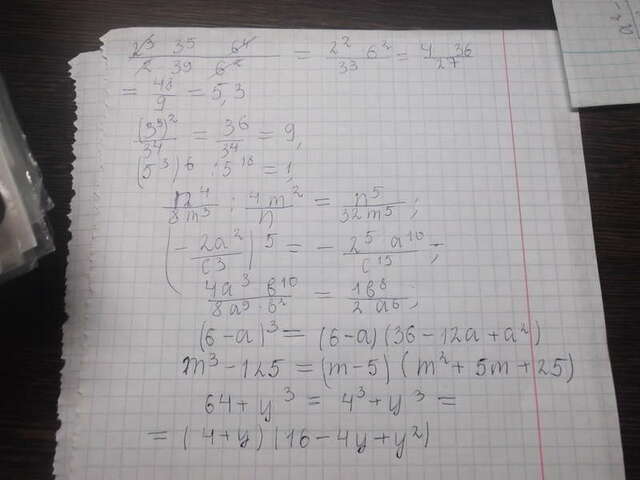 2³ 3⁵ 6⁴ / 2 3⁹ 6² = 2² 6² / 3³ = 4 36 / 27
= 48/9 = 5,3
(3³)² / 3⁴ = 3⁶ / 3⁴ = 9,
(5³)⁶ : 5¹⁸ = 1,
n⁴ / 8m³ : 4m² / n = n⁵ / 32m⁵ ;
(- 2a² / c³)⁵ = - 2⁵ a¹⁰ / c¹⁵ ;
4a³ b¹⁰ / 8a⁹ · b² = 1b⁸ / 2a⁶ ;
(6-a)³ = (6-a)(36-12a+a²)
m³-125 = (m-5)(m²+5m+25)
64+y³ = 4³+y³ =
= (4+y)(16-4y+y²)